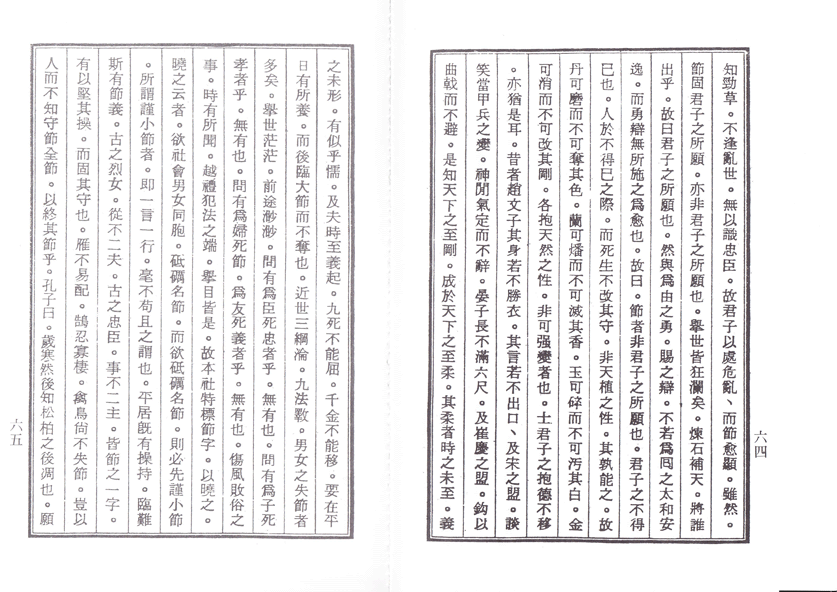 知勁草。不逢亂世。無以識忠臣。故君子以處危亂、而節愈顯。雖然。
節固君子之所願。亦非君子之所願也。舉世皆狂瀾矣。煉石補天。將誰
出乎。故曰君子之所願也。然與爲由之勇。賜之辯。不若爲囘之太和安
逸。而勇辯無所施之爲愈也。故曰。節者非君子之所願也。君子之不得
巳也。人於不得巳之際。而死生不改其守。非天植之性。其孰能之。故
丹可磨而不可奪其色。蘭可燔而不可滅其香。玉可碎而不可汚其白。金
可消而不可改其剛。各抱天然之性。非可强變者也。士君子之抱德不移
。亦猶是耳。昔者趙文子其身若不勝衣。其言若不出口、及宋之盟。談
笑當甲兵之變。神閒氣定而不辭。晏子長不滿六尺。及崔慶之盟。鈎以
曲戟而不避。是知天下之至剛。成於天下之至柔。其柔者時之未至。義
六四
之未形。有似乎懦。及夫時至義起。九死不能屈。千金不能移。要在平
日有所養。而後臨大節而不奪也。近世三綱淪。九法斁。男女之失節者
多矣。舉世茫茫。前途渺渺。問有爲臣死忠者乎。無有也。問有爲子死
孝者乎。無有也。問有爲婦死節。爲友死義者乎。無有也。傷風敗俗之
事。時有所聞。越禮犯法之端。舉目皆是。故本社特標節字。以曉之。
曉之云者。欲社會男女同胞。砥礪名節。而欲砥礪名節。則必先謹小節
。所謂謹小節者。即一言一行。毫不苟且之謂也。平居旣有操持。臨難
斯有節義。古之烈女。從不二夫。古之忠臣。事不二主。皆節之一字。
有以堅其操。而固其守也。雁不易配。鵠忍寡棲。禽鳥尙不失節。豈以
人而不知守節全節。以終其節乎。孔子曰。歲寒然後知松柏之後凋也。願
六五